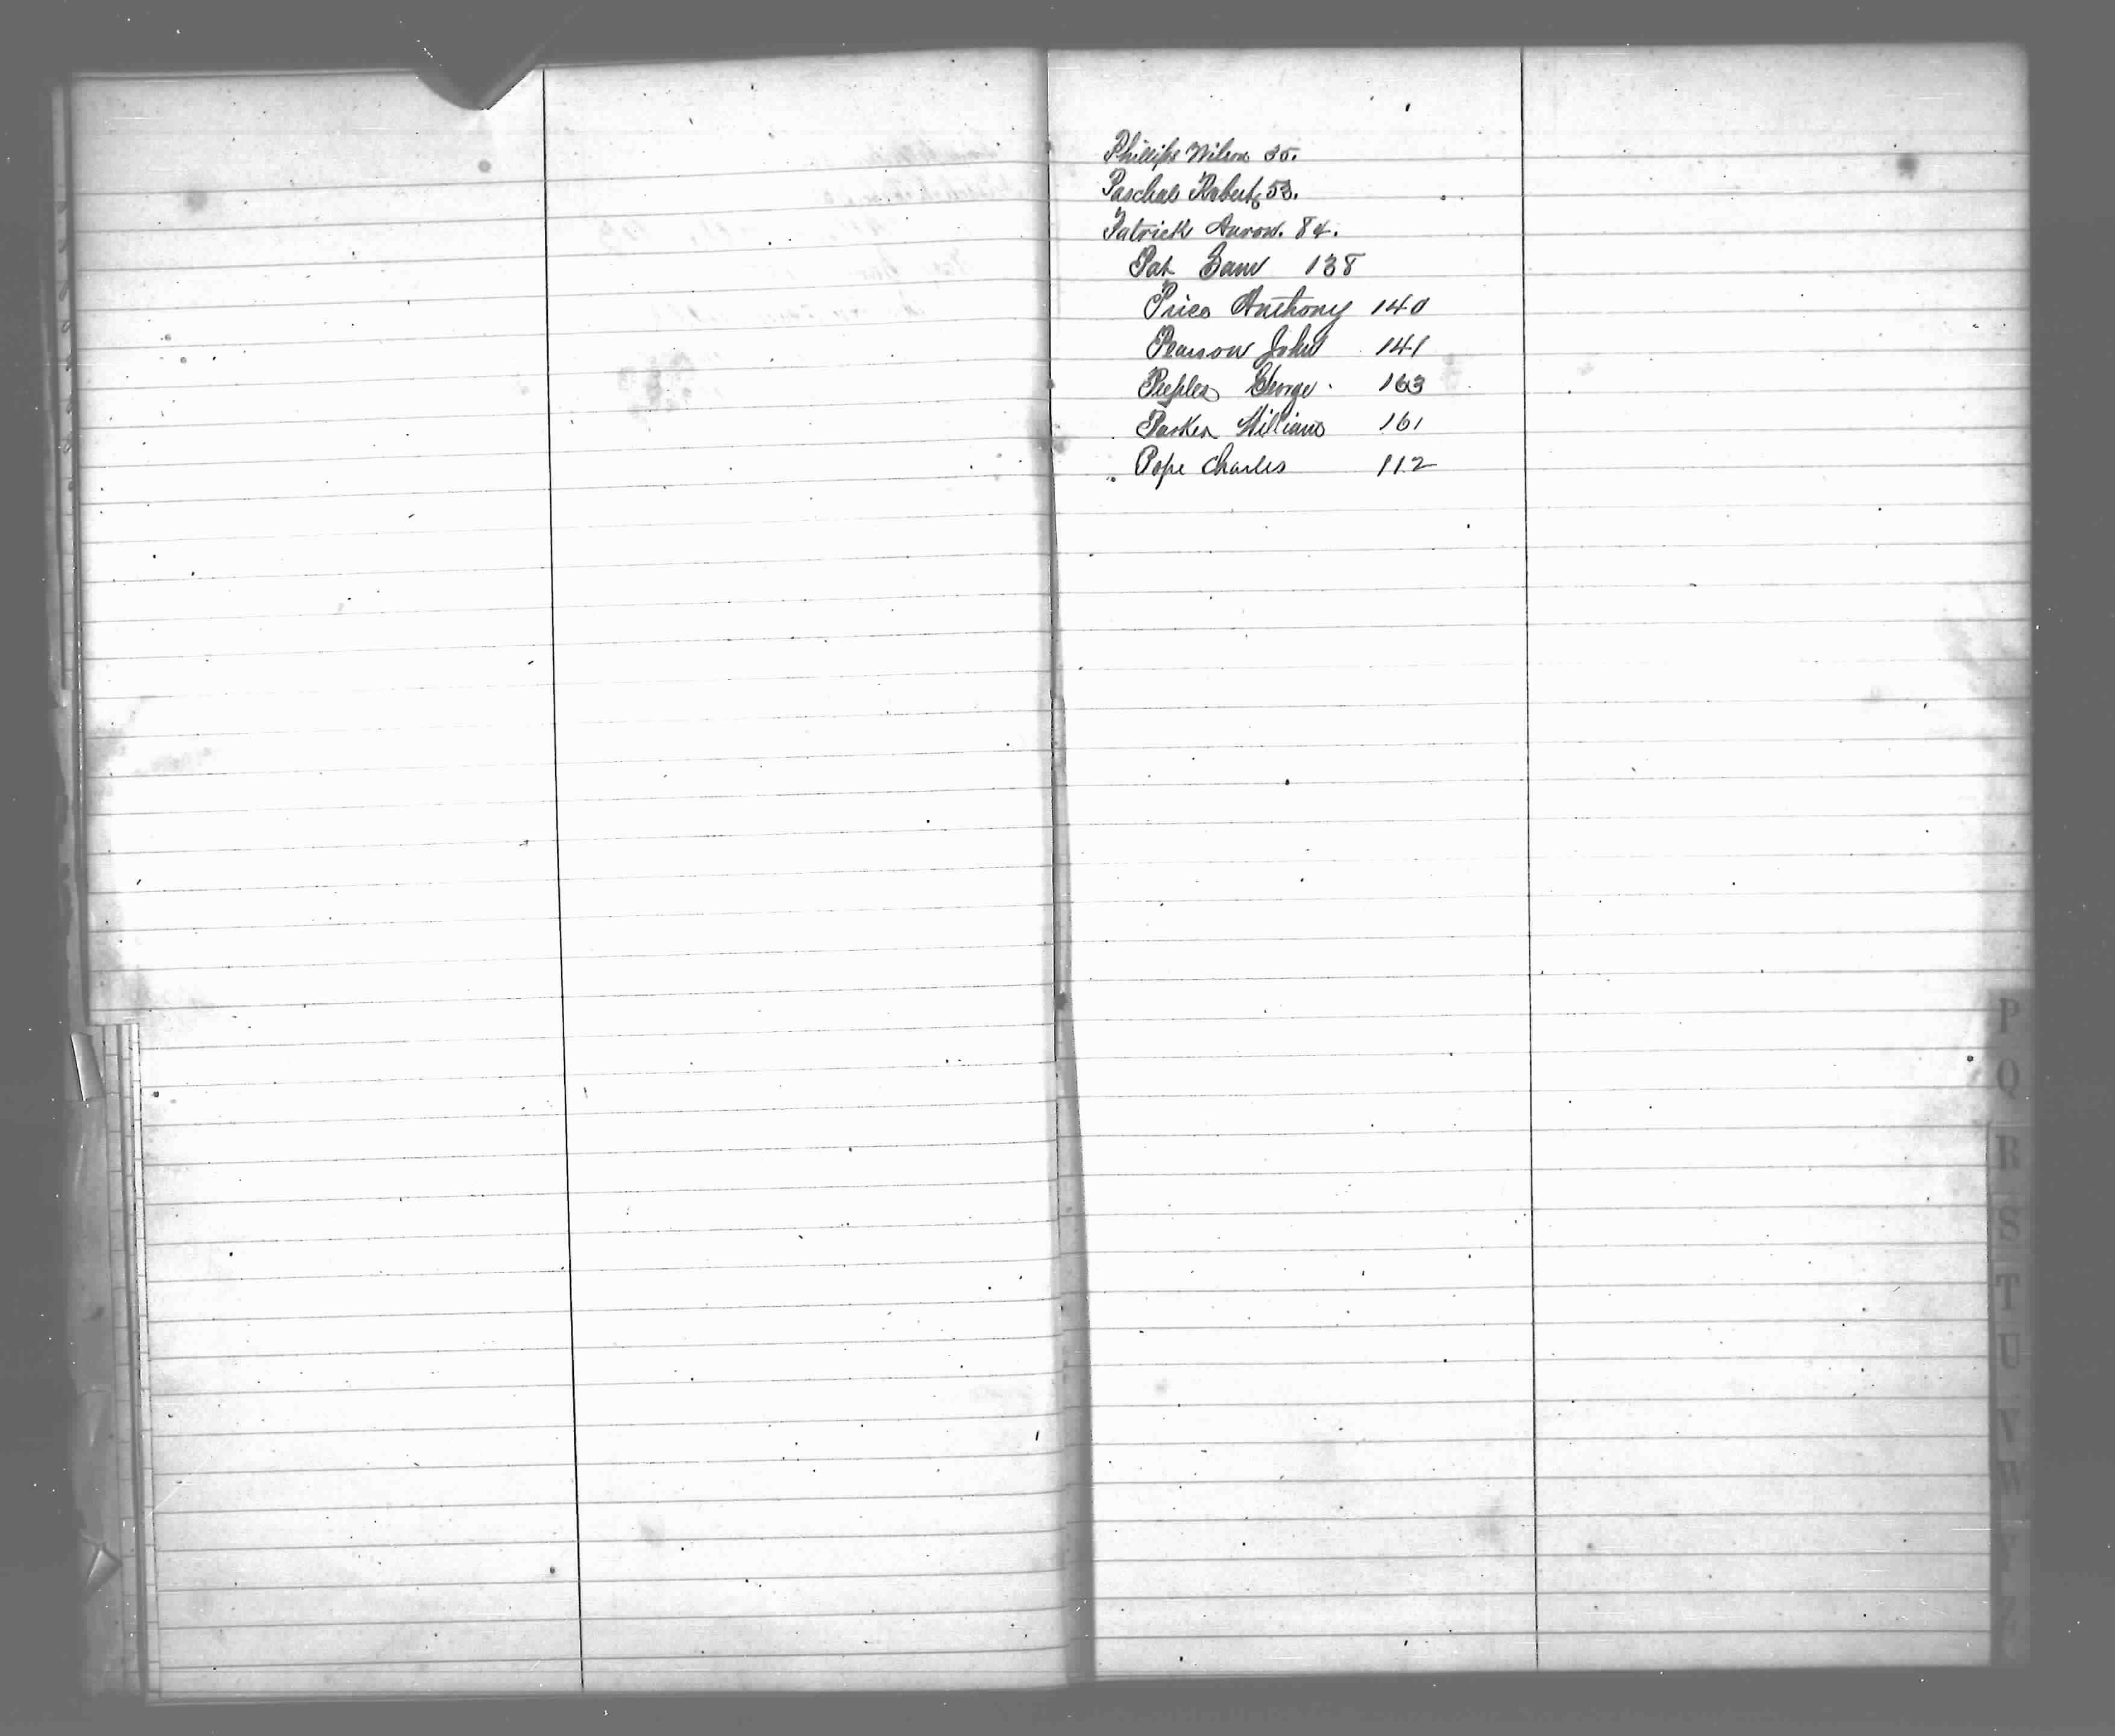 Phillips Wilson 35.
Paschal Robert, 53.
Patrick Aaron. 84.
Pat Sam 138
Price Anthony 140
Pearson John 141
Peeples George 163
Parker William 161
Pope Charles 112
P
Q
R
S
T
U
V
W
Y
Z